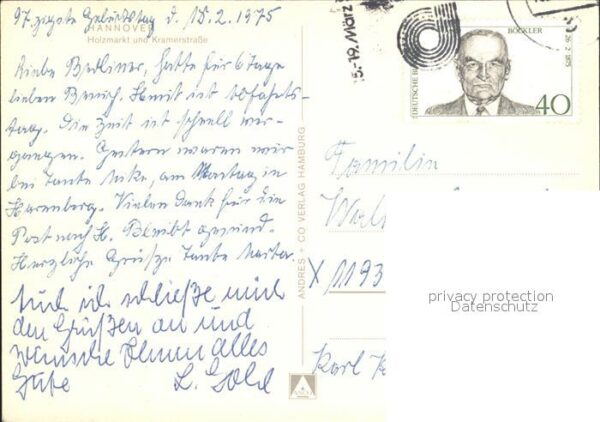 97. zigste Geburtstag d. 15.2.1975
HANNOVER
Holzmarkt und Kramerstraße
Liebe Berliner, hatte für 6 Tage
lieben Besuch. Heute ist Abfahrts-
tag. Die Zeit ist schnell ver-
gangen. Gestern waren wir
bei Tante Anke, am Montag in
Harenberg. Vielen Dank für die
Post nach H. Bleibt gesund.
Herzliche Grüße Tante Marta.
Auch ich schließe mich
den Grüßen an und
wünsche Ihnen alles
Gute L. Gold
ANDRES + CO VERLAG HAMBURG
15.-19. März
26.2.1975
BÖCKLER
DEUTSCHE BU
40
Familie
X 1193
Karl
privacy protection
Datenschutz